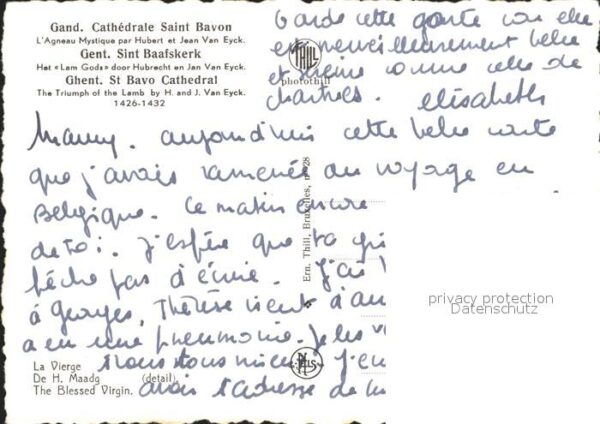 Gand. Cathédrale Saint Bavon
L'Agneau Mystique par Hubert et Jean Van Eyck.
Gent. Sint Baafskerk
Het «Lam Gods» door Hubrecht en Jan Van Eyck.
Ghent. St Bavo Cathedral
The Triumph of the Lamb by H. and J. Van Eyck.
1426-1432
Garde cette carte car elle
est merveilleusement belle
et sereine comme celle de
chartres. Elisabeth
THILL
photothill
Mamy. aujourd'hui cette belle carte
que j'avais ramenée du voyage en
Belgique. Ce matin encore
de toi. J'espère que ta
pêche pas d'écrire. J'ai
à Georges, Thérèse vient d'
a eu une pneumonie. Je les
Nous tous mieux. J'
avais l'adresse de
Ern. Thill, Bruxelles, n° 28
NELS
La Vierge
De H. Maagd (detail)
The Blessed Virgin.
privacy protection
Datenschutz